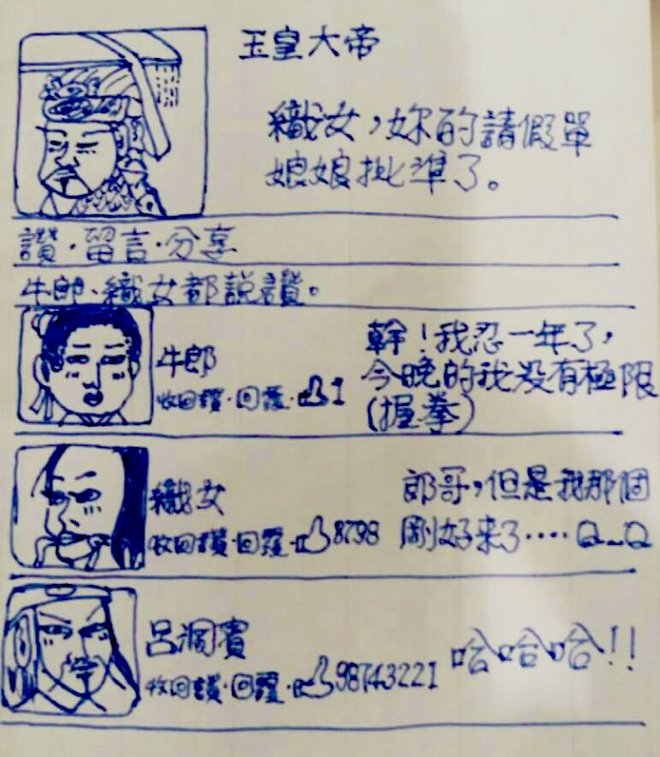 玉皇大帝
織女，妳的請假單
娘娘批準了。
讚·留言·分享
牛郎、織女都說讚。
牛郎
收回讚·回覆·1
幹！我忍一年了，
今晚的我沒有極限
(握拳)
織女
收回讚·回覆·8798
郎哥，但是我那個
剛好來了····Q_Q
呂洞賓
收回讚·回覆·98743221
哈哈哈!!